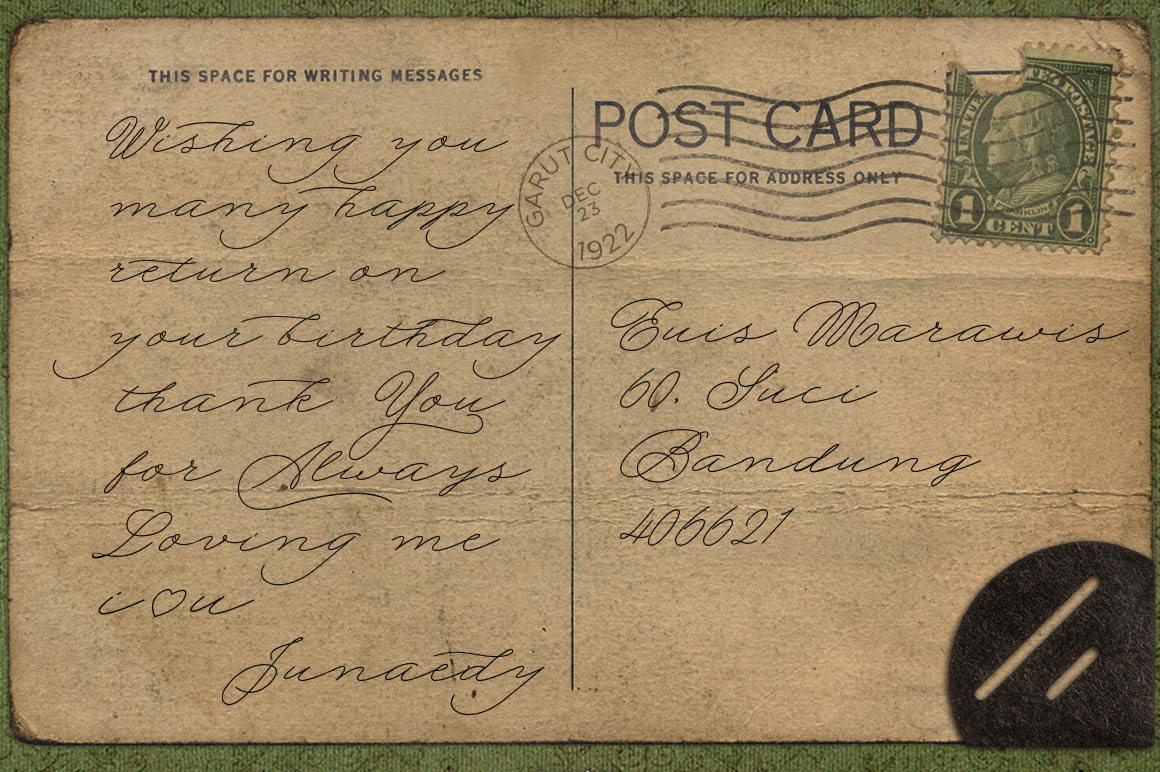 THIS SPACE FOR WRITING MESSAGES
Wishing you
many happy
return on
your birthday
thank You
for Always
Loving me
i♡u
Junaedy
POST CARD
THIS SPACE FOR ADDRESS ONLY
GARUT CITY
DEC
23
1922
FRANKLIN
1 CENT 1
Euis Marawis
60. Suci
Bandung
406621